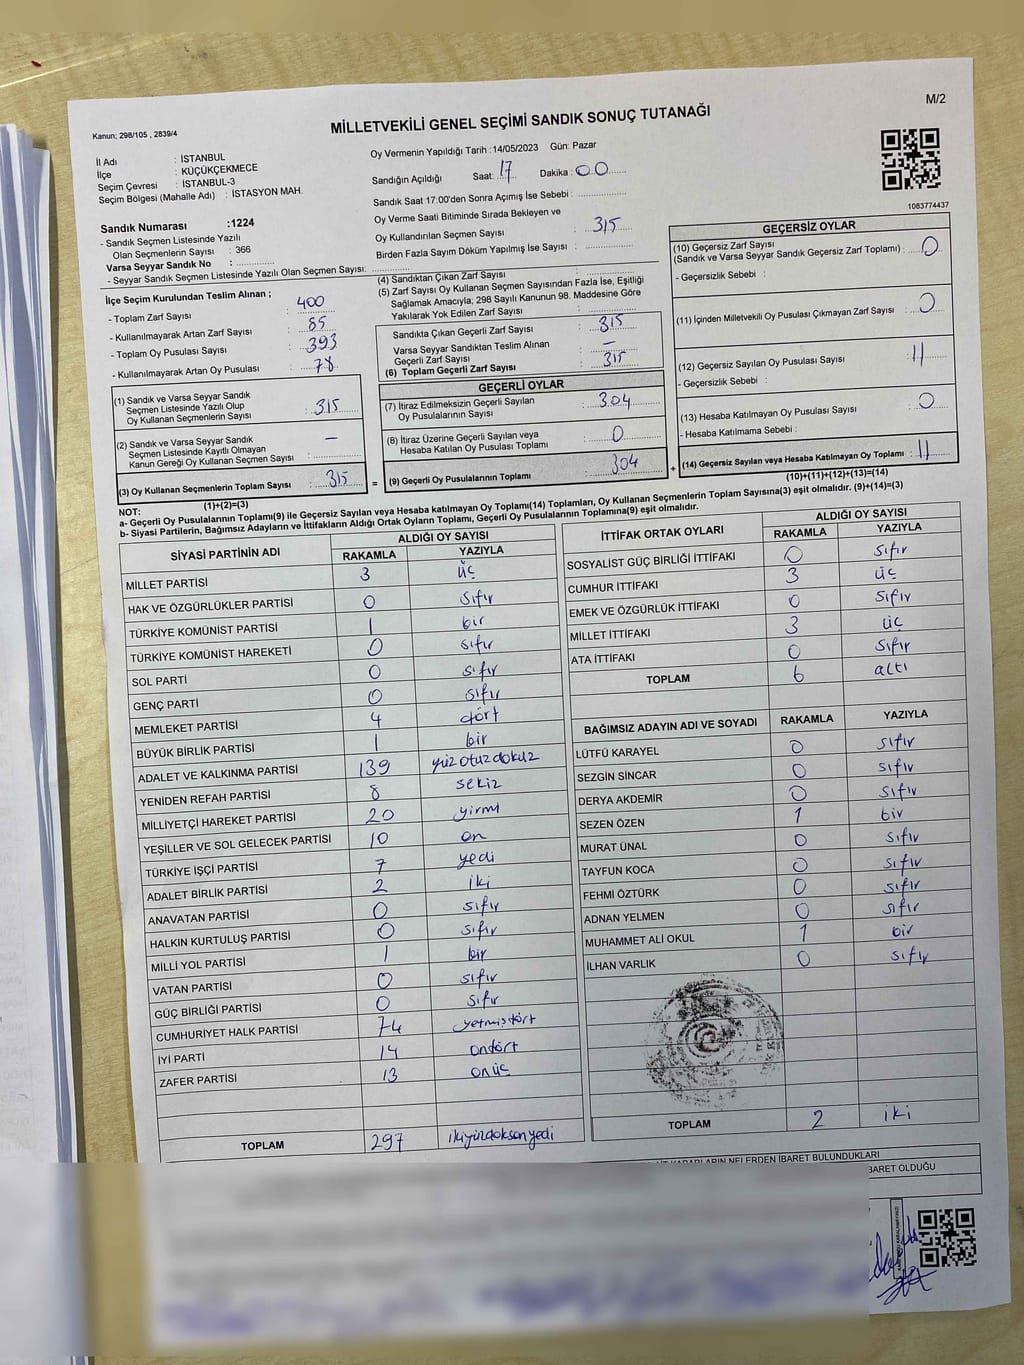 M/2
Kanun; 298/105 , 2839/4
MİLLETVEKİLİ GENEL SEÇİMİ SANDIK SONUÇ TUTANAĞI
İl Adı : İSTANBUL
İlçe : KÜÇÜKÇEKMECE
Seçim Çevresi : İSTANBUL-3
Seçim Bölgesi (Mahalle Adı) : İSTASYON MAH.
Oy Vermenin Yapıldığı Tarih :14/05/2023 Gün: Pazar
Sandığın Açıldığı Saat: 17 Dakika: 00
Sandık Saat 17:00'den Sonra Açımış İse Sebebi :
Oy Verme Saati Bitiminde Sırada Bekleyen ve
Oy Kullandırılan Seçmen Sayısı : 315
Birden Fazla Sayım Döküm Yapılmış İse Sayısı :
1083774437
Sandık Numarası :1224
- Sandık Seçmen Listesinde Yazılı
Olan Seçmenlerin Sayısı : 366
Varsa Seyyar Sandık No :
- Seyyar Sandık Seçmen Listesinde Yazılı Olan Seçmen Sayısı:
İlçe Seçim Kurulundan Teslim Alınan ;
- Toplam Zarf Sayısı : 400
- Kullanılmayarak Artan Zarf Sayısı : 85
- Toplam Oy Pusulası Sayısı : 393
- Kullanılmayarak Artan Oy Pusulası : 78
(1) Sandık ve Varsa Seyyar Sandık
Seçmen Listesinde Yazılı Olup
Oy Kullanan Seçmenlerin Sayısı : 315
(2) Sandık ve Varsa Seyyar Sandık
Seçmen Listesinde Kayıtlı Olmayan
Kanun Gereği Oy Kullanan Seçmen Sayısı : —
(3) Oy Kullanan Seçmenlerin Toplam Sayısı : 315
(1)+(2)=(3)
(4) Sandıktan Çıkan Zarf Sayısı :
(5) Zarf Sayısı Oy Kullanan Seçmen Sayısından Fazla İse, Eşitliği
Sağlamak Amacıyla; 298 Sayılı Kanunun 98. Maddesine Göre
Yakılarak Yok Edilen Zarf Sayısı :
Sandıkta Çıkan Geçerli Zarf Sayısı : 315
Varsa Seyyar Sandıktan Teslim Alınan
Geçerli Zarf Sayısı : —
(6) Toplam Geçerli Zarf Sayısı : 315
GEÇERLİ OYLAR
(7) İtiraz Edilmeksizin Geçerli Sayılan
Oy Pusulalarının Sayısı : 304
(8) İtiraz Üzerine Geçerli Sayılan veya
Hesaba Katılan Oy Pusulası Toplamı : 0
= (9) Geçerli Oy Pusulalarının Toplamı : 304 +
GEÇERSİZ OYLAR
(10) Geçersiz Zarf Sayısı
(Sandık ve Varsa Seyyar Sandık Geçersiz Zarf Toplamı) : 0
- Geçersizlik Sebebi :
(11) İçinden Milletvekili Oy Pusulası Çıkmayan Zarf Sayısı : 0
(12) Geçersiz Sayılan Oy Pusulası Sayısı : 11
- Geçersizlik Sebebi :
(13) Hesaba Katılmayan Oy Pusulası Sayısı : 0
- Hesaba Katılmama Sebebi :
(14) Geçersiz Sayılan veya Hesaba Katılmayan Oy Toplamı : 11
(10)+(11)+(12)+(13)=(14)
NOT:
a- Geçerli Oy Pusulalarının Toplamı(9) ile Geçersiz Sayılan veya Hesaba katılmayan Oy Toplamı(14) Toplamları, Oy Kullanan Seçmenlerin Toplam Sayısına(3) eşit olmalıdır. (9)+(14)=(3)
b- Siyasi Partilerin, Bağımsız Adayların ve İttifakların Aldığı Ortak Oyların Toplamı, Geçerli Oy Pusulalarının Toplamına(9) eşit olmalıdır.
SİYASİ PARTİNİN ADI ALDIĞI OY SAYISI
RAKAMLA YAZIYLA
MİLLET PARTİSİ 3 üç
HAK VE ÖZGÜRLÜKLER PARTİSİ 0 sıfır
TÜRKİYE KOMÜNİST PARTİSİ 1 bir
TÜRKİYE KOMÜNİST HAREKETİ 0 sıfır
SOL PARTİ 0 sıfır
GENÇ PARTİ 0 sıfır
MEMLEKET PARTİSİ 4 dört
BÜYÜK BİRLİK PARTİSİ 1 bir
ADALET VE KALKINMA PARTİSİ 139 yüzotuzdokuz
YENİDEN REFAH PARTİSİ 8 sekiz
MİLLİYETÇİ HAREKET PARTİSİ 20 yirmi
YEŞİLLER VE SOL GELECEK PARTİSİ 10 on
TÜRKİYE İŞÇİ PARTİSİ 7 yedi
ADALET BİRLİK PARTİSİ 2 iki
ANAVATAN PARTİSİ 0 sıfır
HALKIN KURTULUŞ PARTİSİ 0 sıfır
MİLLİ YOL PARTİSİ 1 bir
VATAN PARTİSİ 0 sıfır
GÜÇ BİRLİĞİ PARTİSİ 0 sıfır
CUMHURİYET HALK PARTİSİ 74 yetmişdört
İYİ PARTİ 14 ondört
ZAFER PARTİSİ 13 onüç
TOPLAM 297 ikiyüzdoksanyedi
İTTİFAK ORTAK OYLARI ALDIĞI OY SAYISI
RAKAMLA YAZIYLA
SOSYALİST GÜÇ BİRLİĞİ İTTİFAKI 0 sıfır
CUMHUR İTTİFAKI 3 üç
EMEK VE ÖZGÜRLÜK İTTİFAKI 0 sıfır
MİLLET İTTİFAKI 3 üç
ATA İTTİFAKI 0 sıfır
TOPLAM 6 altı
BAĞIMSIZ ADAYIN ADI VE SOYADI RAKAMLA YAZIYLA
LÜTFÜ KARAYEL 0 sıfır
SEZGİN SİNCAR 0 sıfır
DERYA AKDEMİR 0 sıfır
SEZEN ÖZEN 1 bir
MURAT ÜNAL 0 sıfır
TAYFUN KOCA 0 sıfır
FEHMİ ÖZTÜRK 0 sıfır
ADNAN YELMEN 0 sıfır
MUHAMMET ALİ OKUL 1 bir
İLHAN VARLIK 0 sıfır
TOPLAM 2 iki
KARARLARIN NELERDEN İBARET BULUNDUKLARI
BARET OLDUĞU